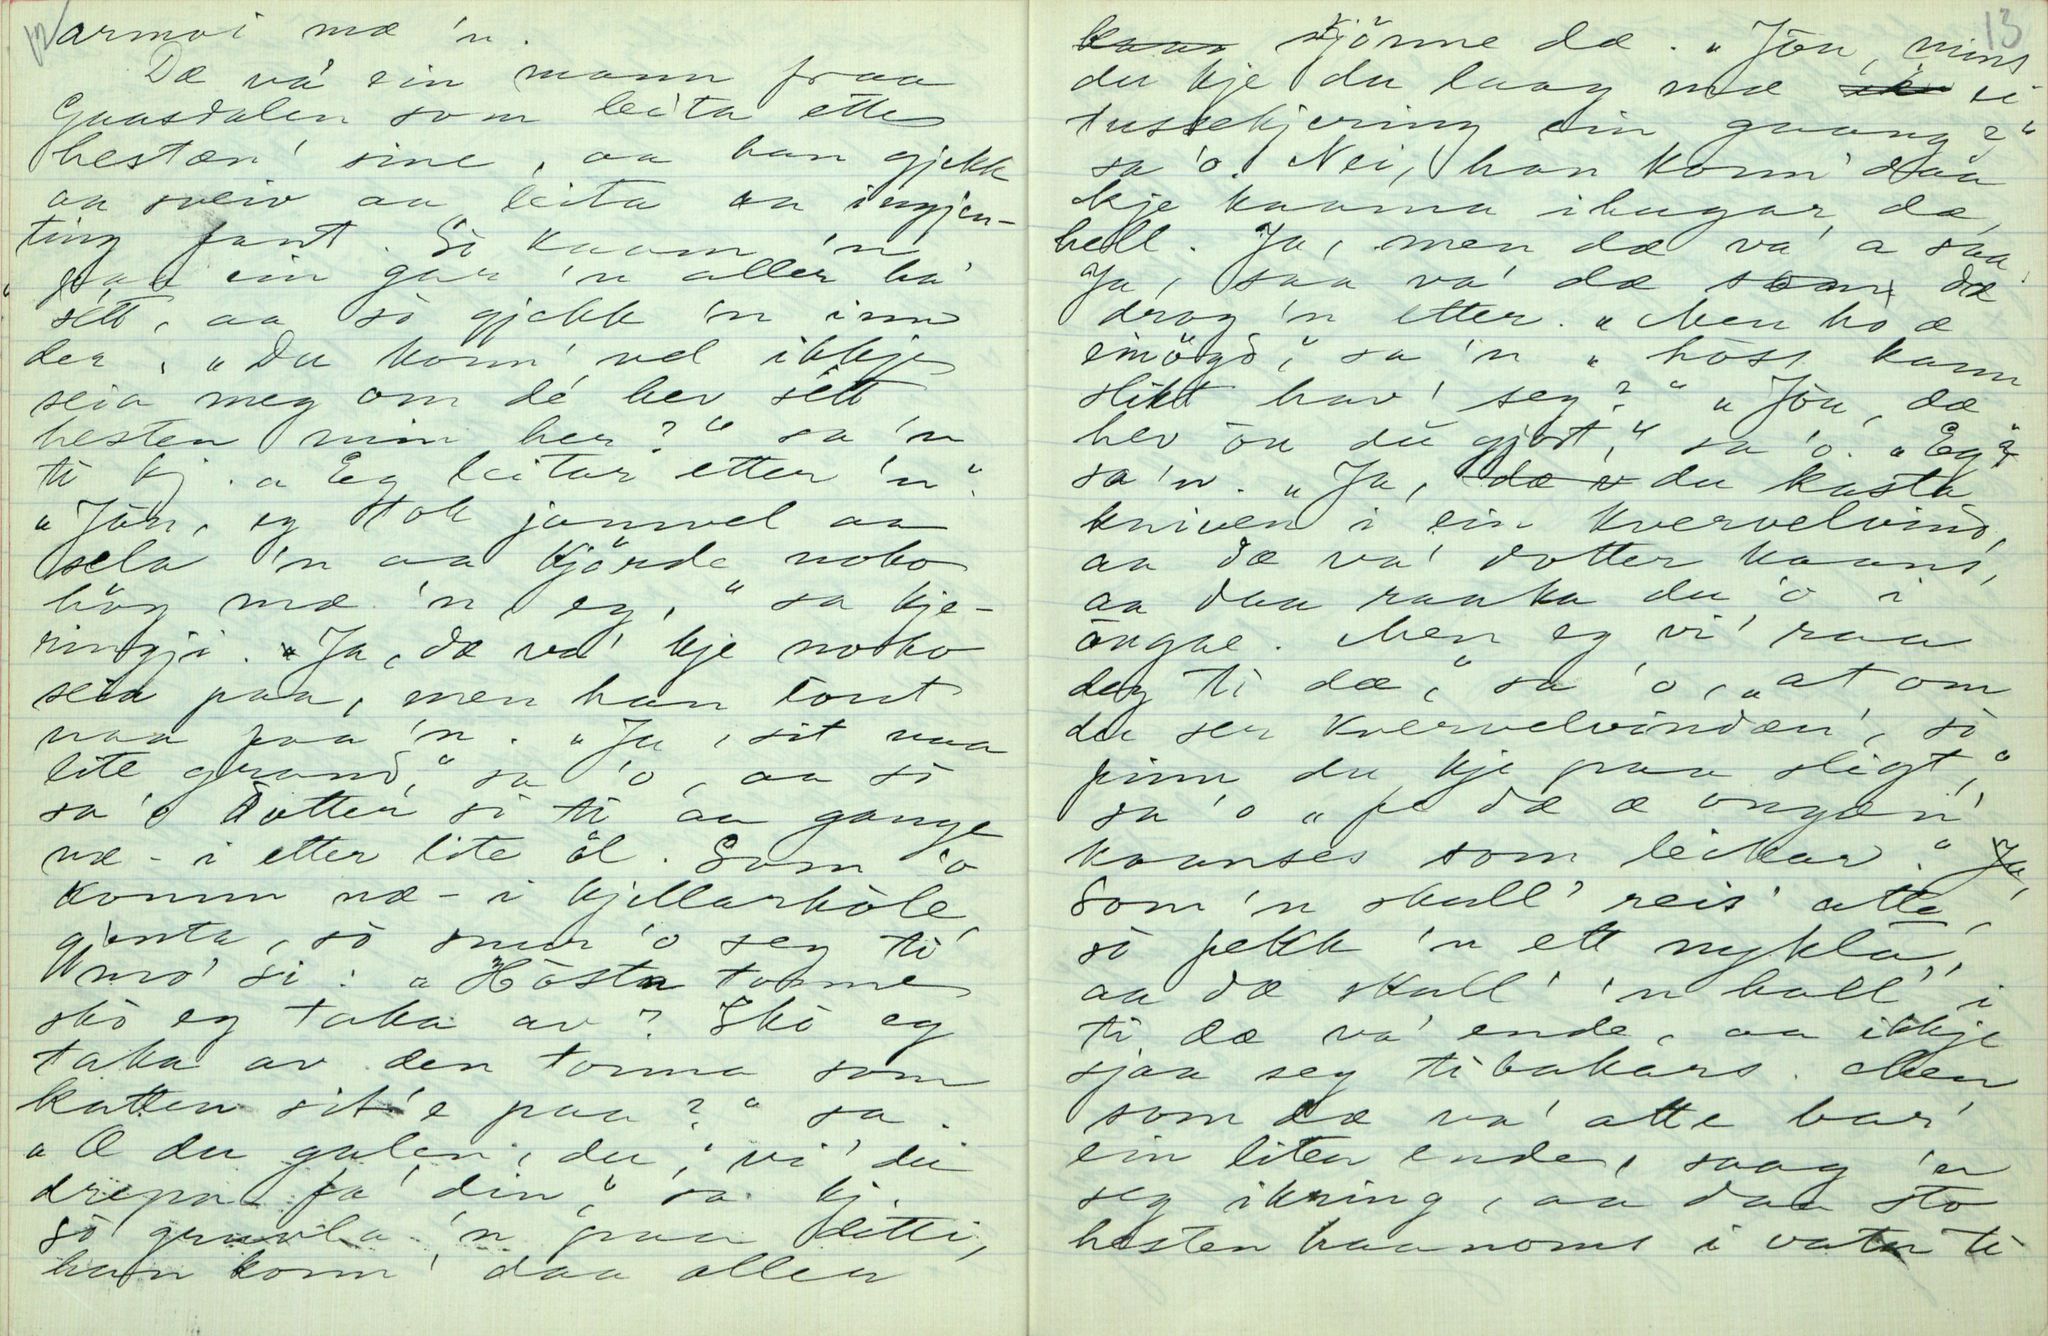 12
armoi mæ 'n.
Dæ va' ein mann fraa
Gaasdalen som leita ette
hestæn' sine, aa han gjekk
aa sveiv aa leita aa ingjen-
ting fant. Så kaam 'n
paa ein gar 'n aller ha'
sett, aa så gjekk 'n inn
der. "Du konn' vel ikkje
seia meg om dé hev sett
hesten min her?" sa 'n
ti kj. "Eg leitar etter 'n".
"Jöu, eg tok jamvel aa
sela 'n aa kjörde noko
höy mæ 'n eg," sa kje-
ringji. "Ja, dæ va' kje noko
seia paa, men han tout
naa paa 'n. "Ja, sit naa
lite grand," sa 'o, aa så
sa 'o dotter si ti aa gange
næ-i etter lite öl. Som 'o
komm næ-i kjellarhöle
gjenta, så snur 'o seg ti
mo' si: "Hösn tonne
skå eg taka av? Skå eg
taka av den tonna som
katten sit'e paa?" sa.
"Æ du galen, du, vi' du
drepa fa' din," sa kj.
Så gruvla 'n paa detti,
han konn' daa aller
13
kjönne dæ. "Jöu, mins
du kje du laag mæ ei
tussekjering ein gaang?"
sa 'o. Nei, han konn' daa
kje kaama ihugar dæ,
hell. Ja, men dæ va' a saa.
Ja, saa va' dæ som dæ
drog 'n etter. "Men ho æ
einögd," sa 'n "höss kann
slikt hav' seg?" "Jöu, dæ
hev öu du gjort," sa 'o. "Eg?"
sa 'n. "Ja, du kasta
kniven i ein kvervelvind,
aa dæ va' dotter kaans,
aa daa raaka du 'o i
öugae. Men eg vi' raa
deg ti dæ," sa 'o, "at om
du ser kvervelvindæn', så
pinn du kje paa sligt,"
sa 'o "fe dæ æ ongæn'
kaanses som leikar." Ja,
Som 'n skull' reis' atte,
så fekk 'n ett nyklå,
aa dæ skull' 'n hall' i
ti dæ va' ende, aa ikkje
sjaa seg tibakars. Men
som dæ va' atte bar'
ein liten ende, saag 'n
seg ikring, aa daa sto
hesten haanoms i vatn ti